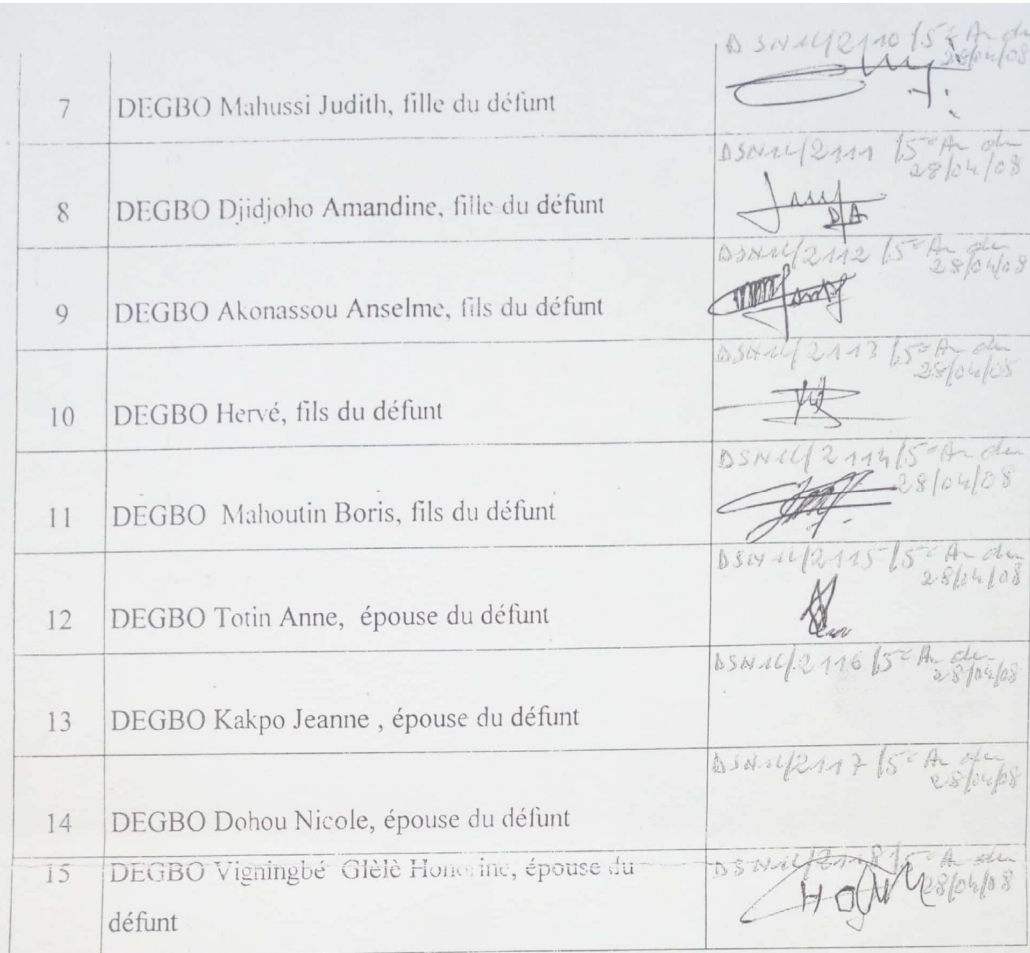 DSN14/2110 /5e Ar du
28/04/08
7 DEGBO Mahussi Judith, fille du défunt
DSN14/2111 /5e Ar du
28/04/08
8 DEGBO Djidjoho Amandine, fille du défunt
DA
DSN14/2112 /5e Ar du
28/04/08
9 DEGBO Akonassou Anselme, fils du défunt
DSN14/2113 /5e Ar du
28/04/08
10 DEGBO Hervé, fils du défunt
DSN14/2114 /5e Ar du
28/04/08
11 DEGBO Mahoutin Boris, fils du défunt
DSN14/2115 /5e Ar du
28/04/08
12 DEGBO Totin Anne, épouse du défunt
DSN14/2116 /5e Ar du
28/04/08
13 DEGBO Kakpo Jeanne , épouse du défunt
DSN14/2117 /5e Ar du
28/04/08
14 DEGBO Dohou Nicole, épouse du défunt
DSN14/2118 /5e Ar du
28/04/08
15 DEGBO Vigningbé Glèlè Honorine, épouse du
défunt